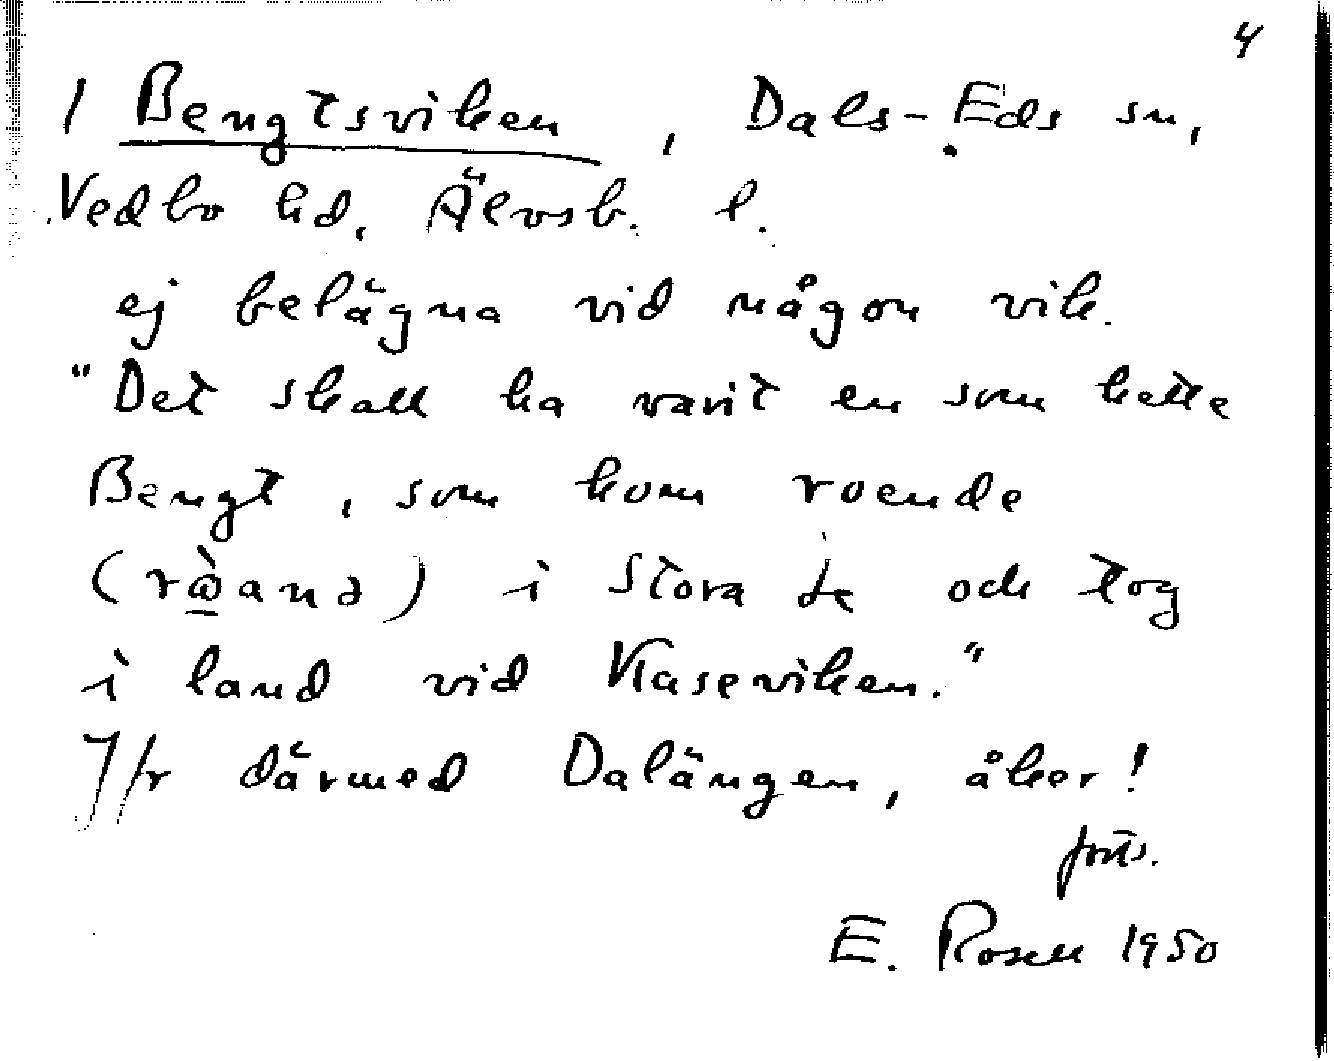 4
/ Bengtsviken, Dals-Eds sn,
Vedbo hd, Älvsb. l.
ej belägna vid någon vik.
"Det skall ha varit en som hette
Bengt, som kom roende
i Stora Le och tog
i land vid Klaseviken."
Jfr därmed Dalängen, åker!
forts.
E. Rosell 1950